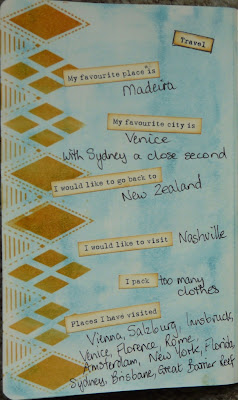 Travel
My favourite place is
Madeira
My favourite city is
Venice
With Sydney a close second
I would like to go back to
New Zealand
I would like to visit Nashville
I pack too many
clothes
Places I have visited
Vienna, Salzburg, Innsbruck,
Venice, Florence, Rome,
Amsterdam, New York, Florida,
Sydney, Brisbane, Great Barrier Reef